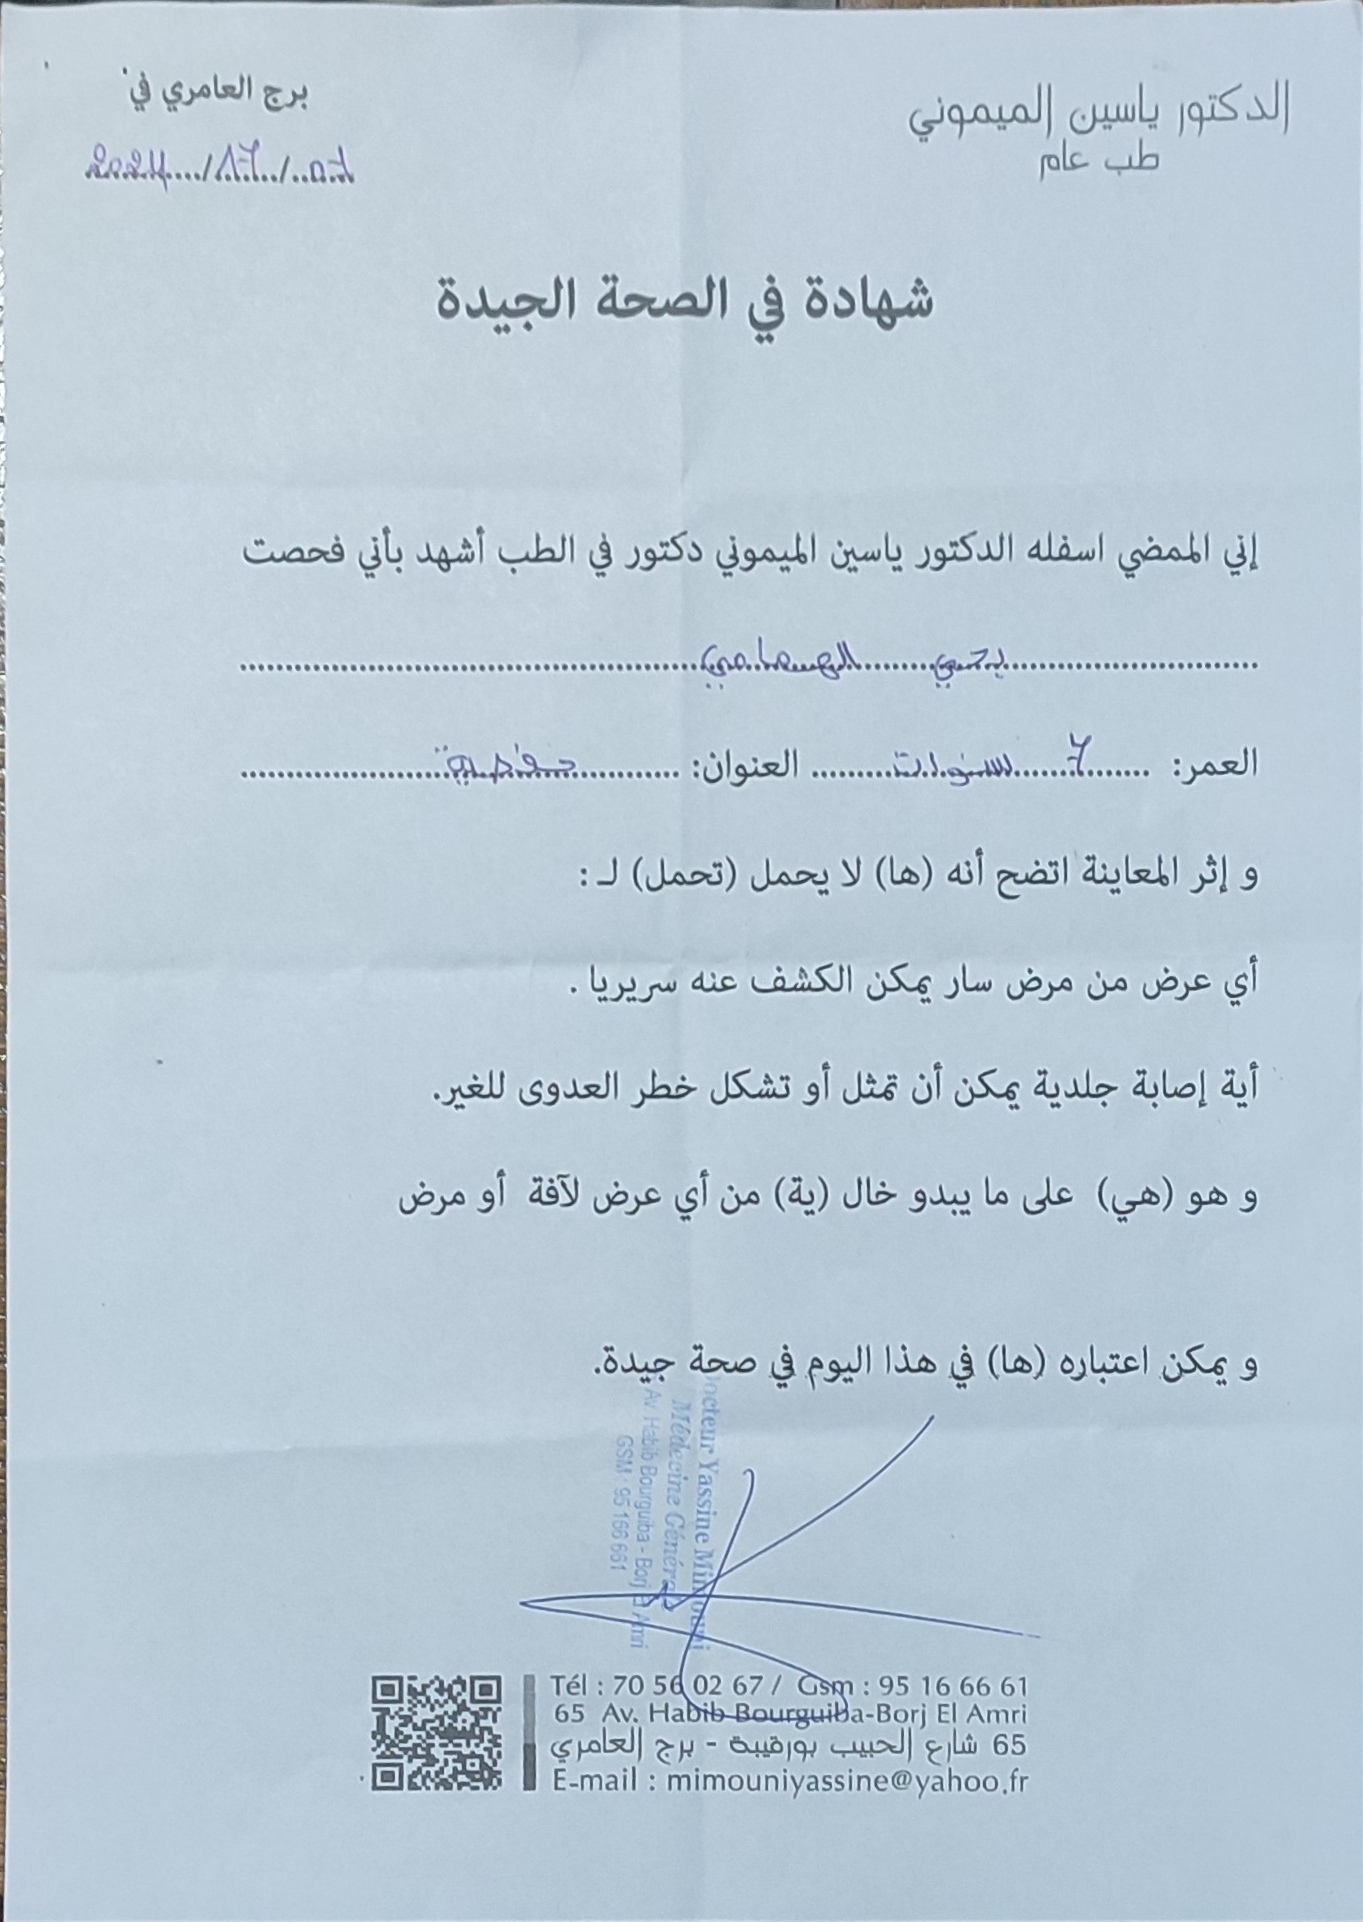 الدكتور ياسين الميموني
طب عام
برج العامري في
2024/17/07
شهادة في الصحة الجيدة
إني الممضي اسفله الدكتور ياسين الميموني دكتور في الطب أشهد بأني فحصت
يحيي
العمر: 7 سنوات العنوان:
و إثر المعاينة اتضح أنه (ها) لا يحمل (تحمل) لـ :
أي عرض من مرض سار يمكن الكشف عنه سريريا .
أية إصابة جلدية يمكن أن تمثل أو تشكل خطر العدوى للغير.
و هو (هي) على ما يبدو خال (ية) من أي عرض لآفة أو مرض
و يمكن اعتباره (ها) في هذا اليوم في صحة جيدة.
Docteur Yassine Mimouni
Médecine Générale
Av Habib Bourguiba - Borj El Amri
GSM : 95 166 661
Tél : 70 56 02 67 / Gsm : 95 16 66 61
65 Av. Habib Bourguiba-Borj El Amri
65 شارع الحبيب بورقيبة - برج العامري
E-mail : mimouniyassine@yahoo.fr